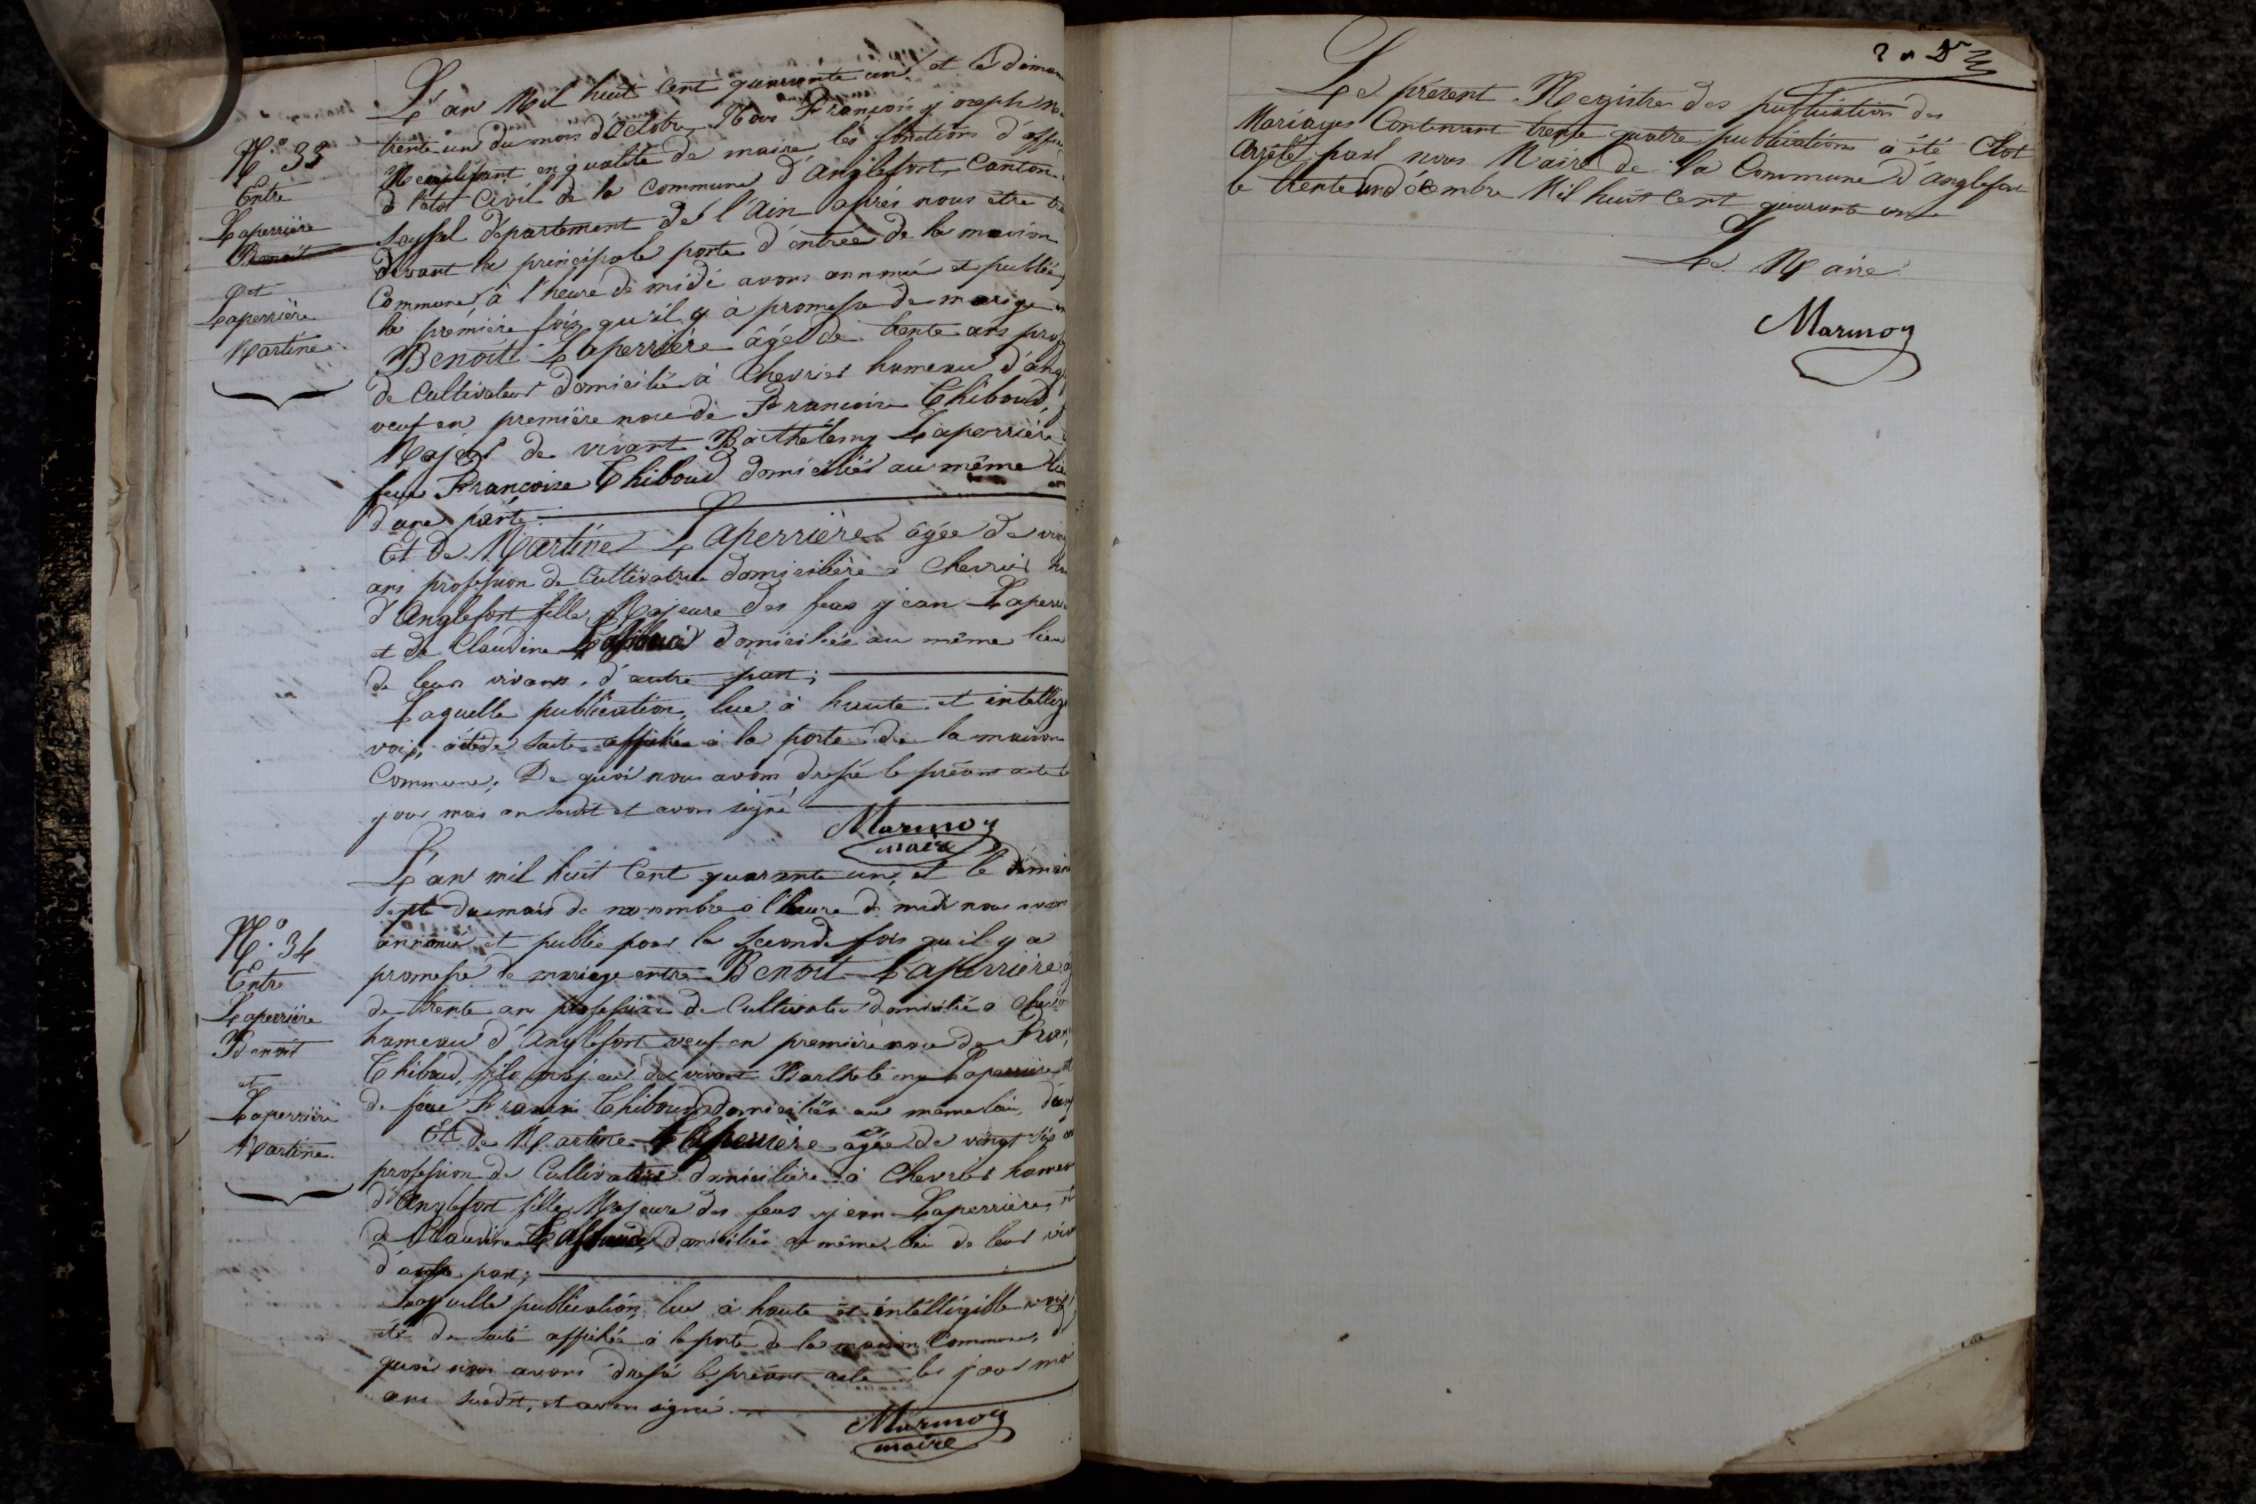 N.° 33
Entre
Laperrière
Benoit
et
Laperrière
Martine
L'an Mil huit Cent quarante un et le diman
trente un du mois d'Octobre Nous François Joseph
Remplissant en qualité de maire les fonctions d'offi
d'état Civil de la Commune d'Anglefort, Canton
Seyssel département de l'Ain après nous être
devant la principale porte d'entrée de la maison
Commune, à l'heure de midi avons annoncé et publié
la première fois qu'il y à promesse de mariage
Benoit Laperrière âgé de trente ans prof
de Cultivateur domicilié à Chevrier hameau d'ang
veuf en première noce de Francoise Thiboud
Majeur de vivant Barthélemy Laperrière
feue Francoise Thiboud domiciliés au même lie
d'une parte
Et de Martine Laperrière âgée de vin
ans profession de Cultivatrice domicilière à Chevrier ha
d'Anglefort fille Majeure des feus jean Laperr
et de Claudine domiciliés au même lieu
de leur vivans, d'autre part;
Laquelle publication, lue à haute et intellig
voix, a été de suite affichée à la porte de la maison
Commune; De quoi nous avons dressé le présent acte
jour mois an susdit et avons signé
Marmoy
maire
N.° 34
Entre
Laperrière
Benoit
et
Laperrière
Martine
L'an mil huit Cent quarante un, et le diman
sept du mois de novembre à l'heure de midi nous avons
annoncé et publié pour la seconde fois qu'il y a
promesse de mariage entre Benoit Laperrière
de trente ans profession de Cultivateur domicilié à Chevr
hameau d'Anglefort veuf en première noce de Fran
Thiboud, fils majeur du vivant Barthélemy Laperrière et
de feue Francoise Thiboud domiciliés au même lieu, d'un
Et de Martine Laperrière âgée de vingt six an
profession de Cultivatrice domicilière à Chevrier hamea
d'Anglefort fille Majeure des feus jean Laperrière, et
de Claudine domiciliés au même lieu de leur viv
d'autre part;
Laquelle publication, lue à haute et intélligible voix,
été de suite affichée à la porte de la maison Commune, d
quoi nous avons dressé le présent acte les jour moi
ans susdit, et avons signé
Marmoy
maire
Le présent Registre des publication des
Mariages Contenant trente quatre publications a été Clot
Arrêté par nous Maire de la Commune d'anglefort
le trente un décembre Mil huit Cent quarante un
Le Maire
Marmoy